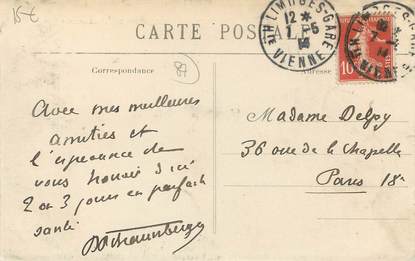 15€
CARTE POSTALE
LIMOGES-GARE
12 *
7 - 5
14
Hte VIENNE
10
Correspondance
87
Adresse
Avec mes meilleures
amitiés et
l'espérance de
vous trouver d'ici
2 ou 3 jours en parfaite
santé
Madame Delpy
36 rue de la Chapelle
Paris 18e